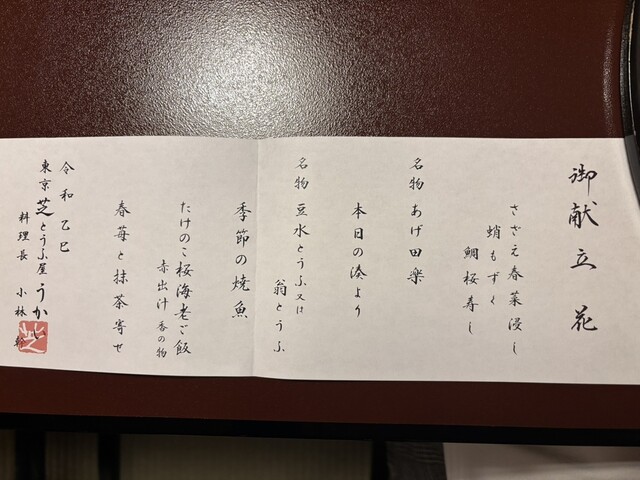 御献立 花
さざえ春菜浸し
蛸もずく
鯛桜寿し
名物 あげ田楽
本日の湊より
名物 豆水とうふ又は
翁とうふ
季節の焼魚
たけのこ桜海老ご飯
赤出汁 香の物
春苺と抹茶寄せ
令和 乙巳
東京 芝とうふ屋うかい
料理長 小林